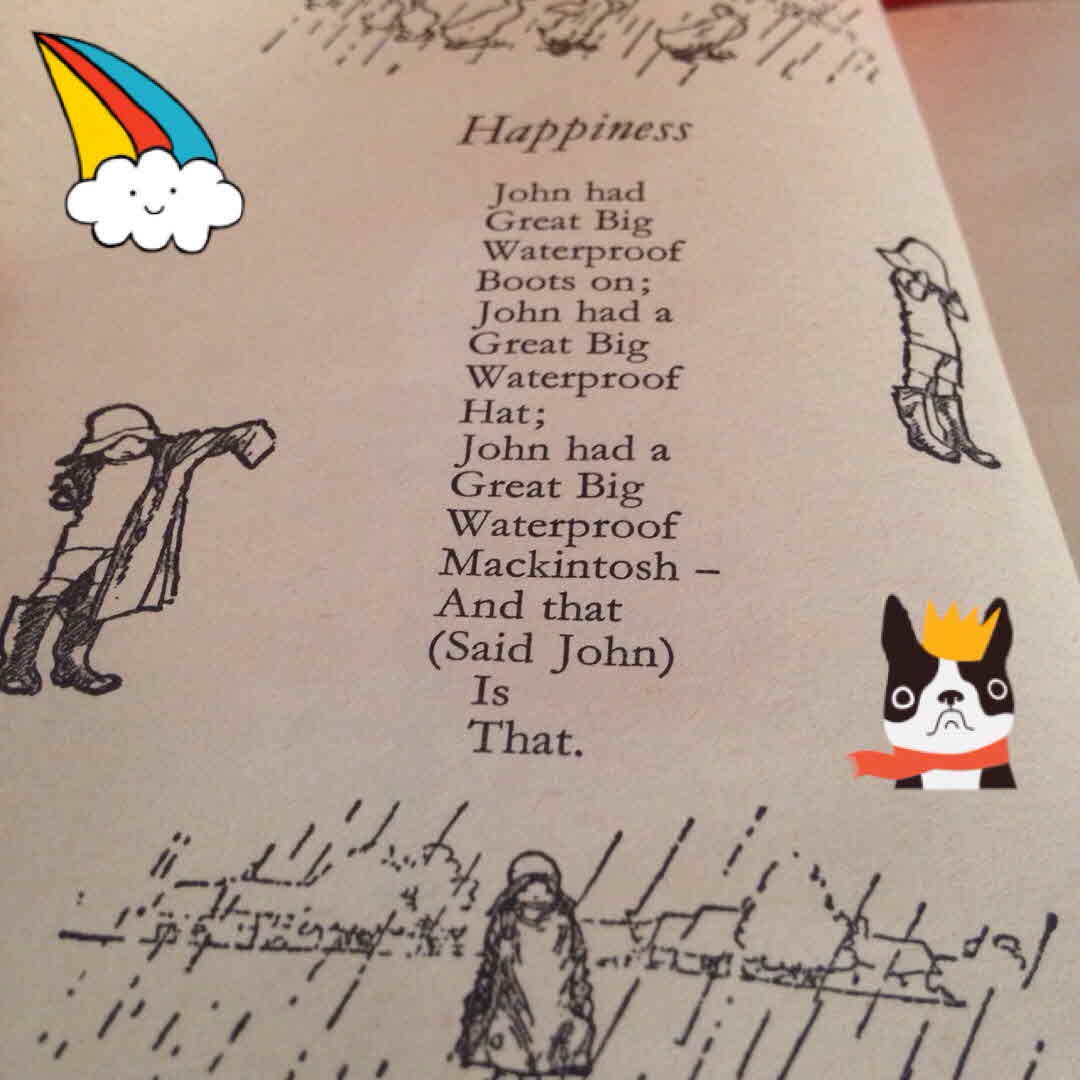 Happiness
John had
Great Big
Waterproof
Boots on;
John had a
Great Big
Waterproof
Hat;
John had a
Great Big
Waterproof
Mackintosh –
And that
(Said John)
Is
That.